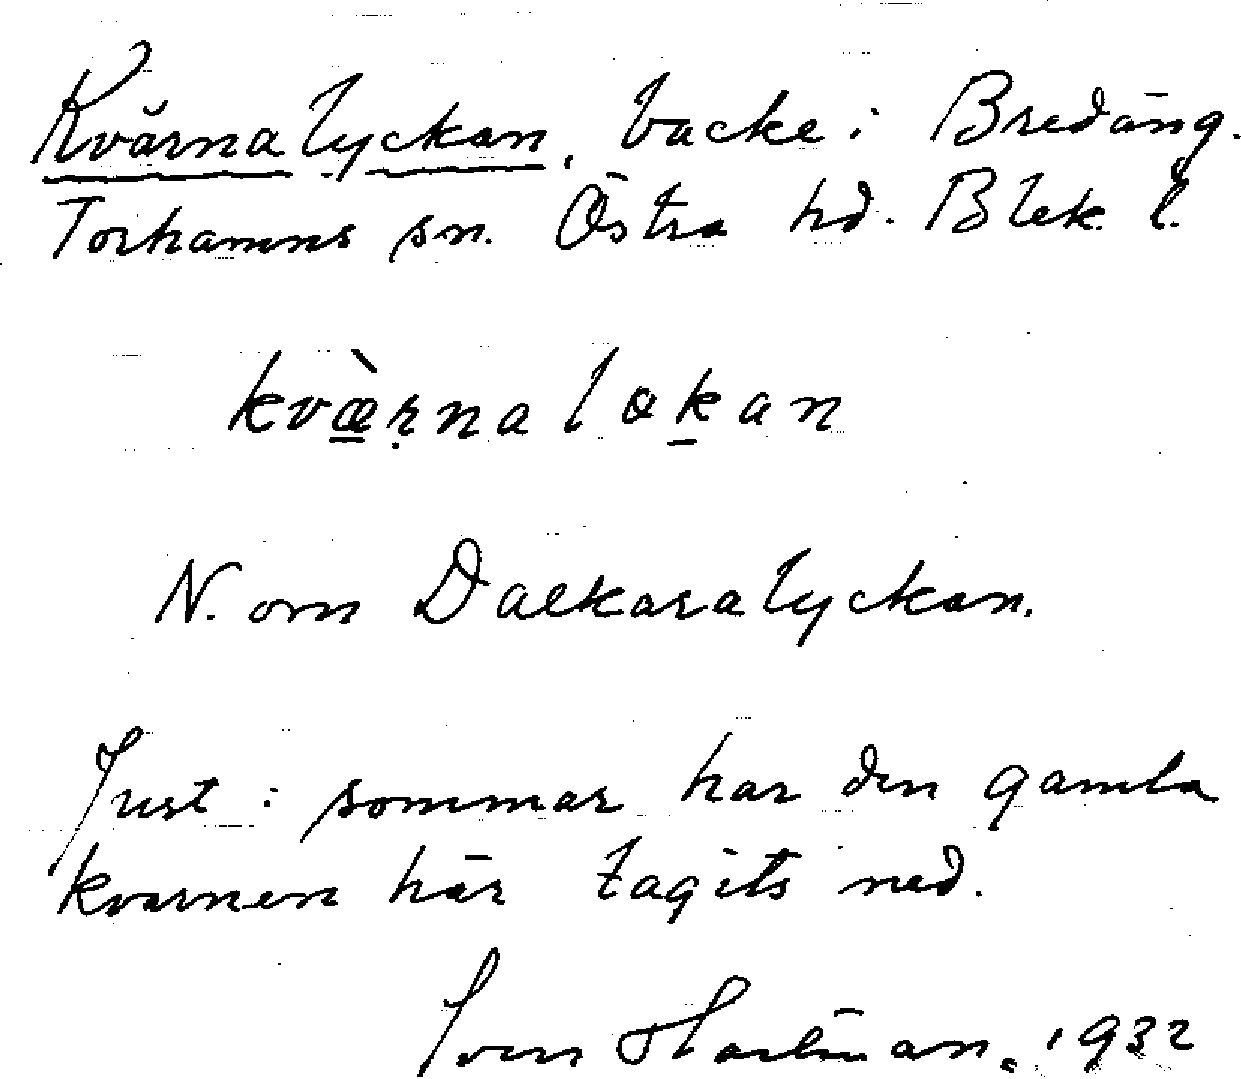 Kvärnalyckan, backe i Bredäng.
Torhamns sn. Östra hd. Blek. l.
kvæ̀rna lokan
N. om Dalkaralyckan.
Just i sommar har den gamla
kvarnen här tagits ned.
Sven 1932